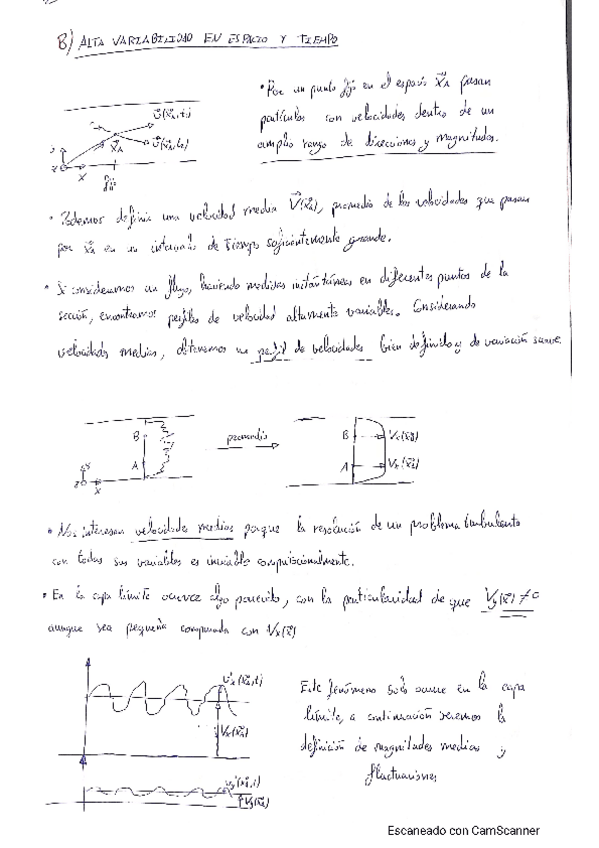 B) ALTA VARIABILIDAD EN ESPACIO Y TIEMPO
• Por un punto fijo en el espacio x⃗A pasan
partículas con velocidades dentro de un
amplio rango de direcciones y magnitudes.
v⃗(x⃗A,t1)
v⃗(x⃗A,t2)
x⃗A
z x
fijo
• Podemos definir una velocidad media V⃗(x⃗A), promedio de las velocidades que pasan
por x⃗A en un intervalo de tiempo suficientemente grande.
• Si consideramos un flujo, haciendo medidas instantáneas en diferentes puntos de la
sección, encontramos perfiles de velocidad altamente variables. Considerando
velocidades medias, obtenemos un perfil de velocidades bien definido y de variación suave.
B
A
z x
promedio
B Vx(x⃗B)
A Vx(x⃗A)
• Nos interesan velocidades medias porque la resolución de un problema turbulento
con todas sus variables es inviable computacionalmente.
• En la capa límite ocurre algo parecido, con la particularidad de que Vy(x⃗) ≠ 0
aunque sea pequeña comparada con Vx(x⃗)
Vx(x⃗A)
Este fenómeno solo ocurre en la capa
límite, a continuación veremos la
definición de magnitudes medias y
fluctuaciones
Vy(x⃗A)
Escaneado con CamScanner